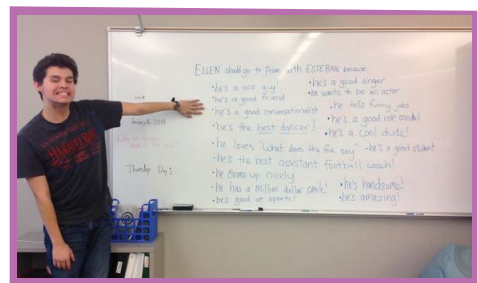 ELLEN should go to Prom with ESTEBAN because
• he's a nice guy
• he's a good friend
• he's a good conversationalist
• he's the best dancer!
• he loves "What does the fox say"
• he's the best assistant football coach!
• he cleans up nicely
• he has a million dollar smile!
• he's good at sports!
• he's a good singer
• he wants to be an actor
• he tells funny jokes
• he's a good role model
• he's a cool dude!
• he's a great student
• he's handsome!
• he's amazing!
Thursday Day